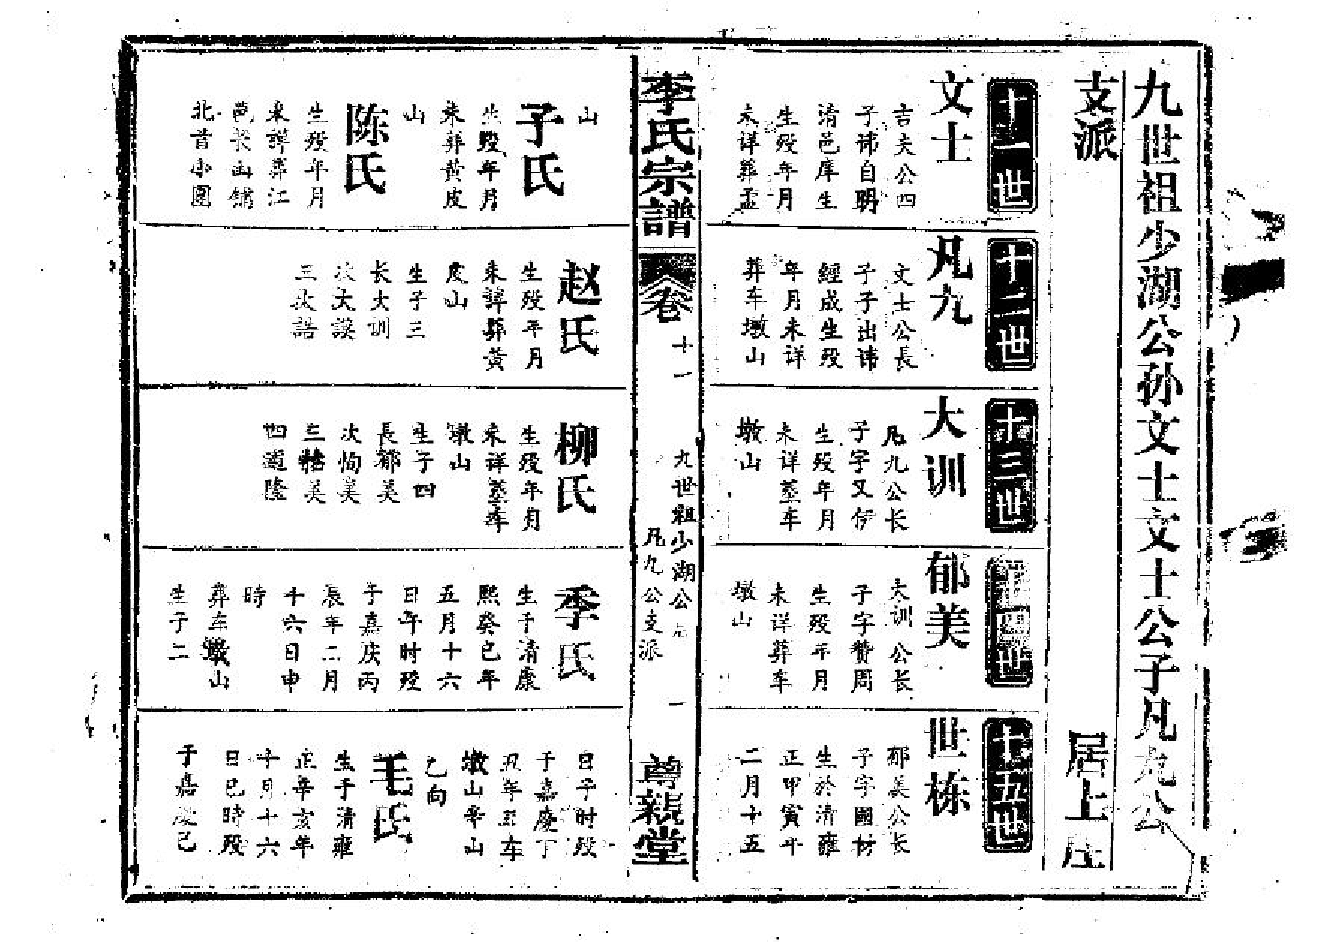 九世祖少湖公孙文士文士公子凡九公
支派
居上庄
十一世
文士
吉夫公四
子讳自明
清邑庠生
生殁年月
未详葬孟
山
子氏
生殁年月
未葬黄皮
山
陈氏
生殁年月
未詳葬江
邑长山铺
北首小園
十二世
凡九
文士公長
子子出讳
經成生殁
年月未详
葬车墩山
赵氏
生殁年月
未詳葬黄
皮山
生子三
长大训
次大谟
三大誥
十三世
大训
凡九公长
子字又伊
生殁年月
未详塟车
墩山
柳氏
生殁年月
未详塟车
墩山
生子四
長郁美
次恂美
三 美
四 隆
十四世
郁美
大训公长
子字赞周
生殁年月
未详葬车
墩山
季氏
生于清康
熙癸巳年
五月十六
日午时殁
于嘉庆丙
辰年二月
十六日申
時
葬车墩山
生子二
十五世
世栋
郁美公长
子字國材
生於清雍
正甲寅年
二月十五
日子时殁
于嘉慶丁
丑年 车
墩山辛山
乙向
毛氏
生于清雍
正辛亥年
十月十六
日巳時殁
于嘉慶己
李氏宗譜
卷
十一
九世祖少湖公
凡九公支派
一
尊親堂